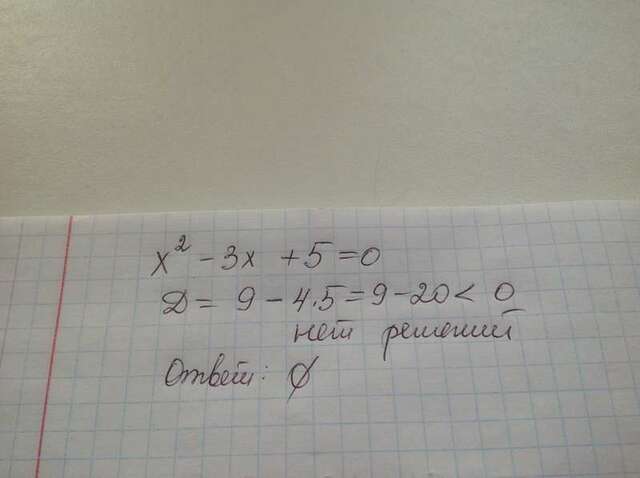 x² - 3x + 5 = 0
D = 9 - 4·5 = 9 - 20 < 0
нет решений
Ответ: ∅